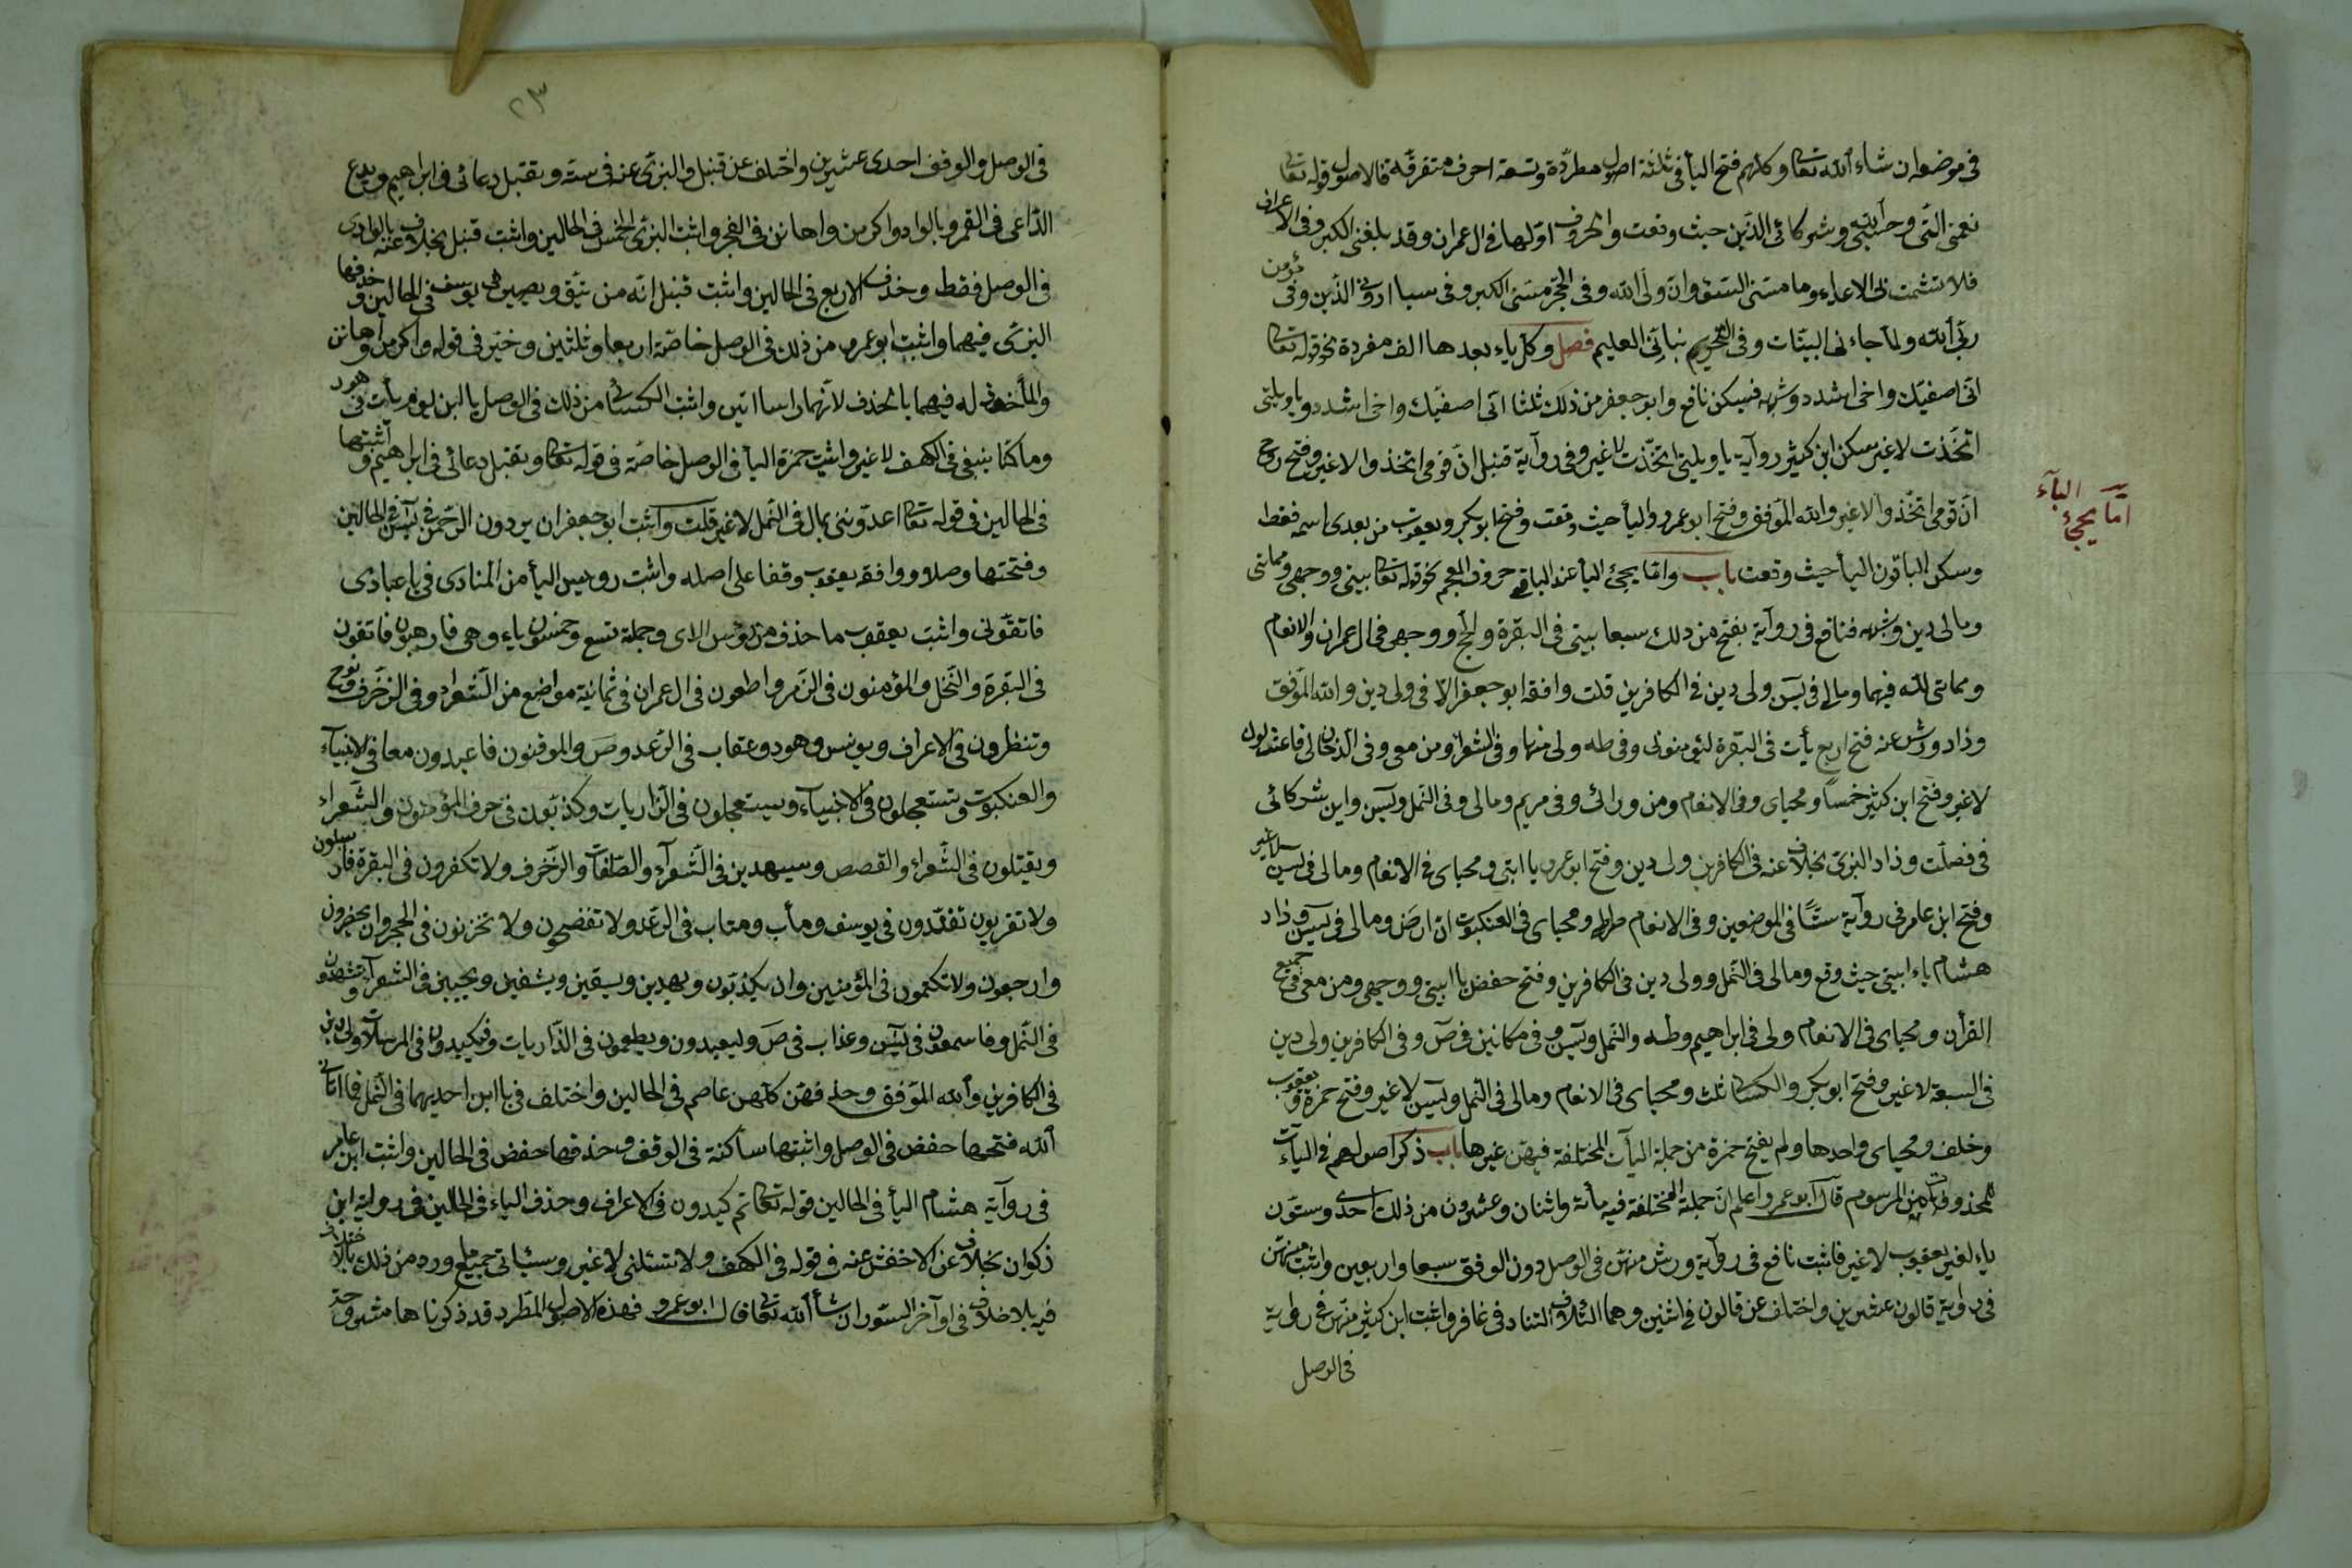 في موضعه ان شاء الله تعالى وكلهم فتح اليأ في ثلثة اصول مطردة وتسعة احرف متفرقة فالاصول قوله تعالى
نعمتي التي وحسبي وشركائي الذين حيث وقعت والحروف اولها في ال عمران وقد بلغني الكبر وفي الاعراف
فلا تشمت بي الاعداء وما مسني السوء وان ولي الله وفي الحجر مسني الكبر وفي سبا اروني الذين وفي مؤمن
ربي الله ولما جاءني البينات وفي التحريم نبأني العليم فصل وكل ياء بعدها الف مفردة نحو قوله تعالى
اني اصفيتك واخي اشدد وشبهه فسكن نافع وابو جعفر من ذلك ثلثا اني اصفيتك واخي اشدد ويا ويلتي
اتخذت لا غير سكن ابن كثير روآية يا ويلتي اتخذت لا غير وفي روآية قنبل ان قومي اتخذوا لا غير وفتح روح
ان قومي اتخذوا لا غير والله الموفق وفتح ابو عمرو اليأ حيث وقعت وفتح ابو بكر ويعقوب من بعدي اسمه فقط
وسكن الباقون اليأ حيث وقعت باب واما يجئ اليأ عند الباقي حروف المعجم نحو قوله تعالى بيتي ووجهي ومماتي
ومالي دين وشبهه فنافع في روآية بفتح من ذلك سبعا بيتي في البقرة والحج ووجهي في ال عمران والانعام
ومماتي لله فيها ومالي في يس ولي دين في الكافرين قلت وافقه ابو جعفر الا في ولي دين والله الموفق
وزاد ورش عنه فتح اربع يأت في البقرة ليؤمنوا بي وفي طه ولي فيها وفي الشعرا ومن معي وفي الدخان لي فاعتزلون
لا غير وفتح ابن كثير خمسا ومحياي وفي الانعام ومن ورائي وفي مريم ومالي وفي النمل ويس واين شركائي
في فصلت وزاد البزي بخلاف عنه في الكافرين ولي دين وفتح ابو عمرو يا ابتي ومحياي في الانعام ومالي في يس لا غير
وفتح ابن عامر في روآية ستا في الموضعين وفي الانعام صراطي ومحياي في العنكبوت ان ارضي ومالي في يس وزاد
هشام ياء بيتي حيث وقع ومالي في النمل وولي دين في الكافرين وفتح حفص يا بيتي ووجهي ومن معي في جميع
القرأن ومحياي في الانعام ولي في ابراهيم وطه والنمل ويس وفي مكانين في ص وفي الكافرين ولي دين
في السبعة لا غير وفتح ابو بكر والكسائي ثلث ومحياي في الانعام ومالي في النمل ويس لا غير وفتح حمزة ويعقوب
وخلف ومحياي واحدها ولم يفتح حمزة من جملة اليأت المختلفة فيهن غيرها باب ذكر اصولهم في اليآت
المحذوفات من المرسوم قال ابو عمرو اعلم ان جملة المختلفة فيه مأتة واثنان وعشرون من ذلك احدى وستون
ياء لغير يعقوب لا غير فاثبت نافع في روآية ورش منهن في الوصل دون الوقف سبعا واربعين واثبت منهن
في رواية قالون عشرين واختلف عن قالون في اثنين وهما التلاق التناد في غافر واثبت ابن كثير منهن في رواية
في الوصل
اما يجئ اليآء
في الوصل والوقف احدى عشرين واختلف عن قنبل والبزي عنه في ستة وتقبل دعائي في ابراهيم ويدع
الداعي في القمر وبالواد واكرمن واهانن في الفجر واثبت البزي الخمس في الحالين واثبت قنبل بخلاف عنه بالوادي
في الوصل فقط وحذف الاربع في الحالين واثبت قنبل انه من يتق ويصبر في يوسف في الحالين وحذفها
البزي فيهما واثبت ابو عمرو من ذلك في الوصل خاصة اربعا وثلثين وخير في قوله واكرمن واهانن
والمأخوذ له فيهما بالحذف لانهما راسا ايتين واثبت الكسائي من ذلك في الوصل يائين يوم يأت في هود
وما كنا نبغي في الكهف لا غير واثبت حمزة اليأ في الوصل خاصة في قوله تعالى وتقبل دعائي في ابراهيم واثبتها
في الحالين في قوله تعالى اتمدونني بمال في النمل لا غير قلت واثبت ابو جعفر ان يردون الرحمن في يس في الحالين
وفتحتها وصلا ووافقه يعقوب وقفا على اصله واثبت رويس اليأ من المنادى في يا عبادي
فاتقوني واثبت يعقوب ما حذف من رؤس الاي وجملة تسع وخمسون ياء وهي فارهبون فاتقون
في البقرة والنحل والمؤمنون في الزمر واطيعون في ال عمران في ثمانية مواضع من الشعراء وفي الزخرف ونوح
وتنظرون في الاعراف ويونس وهود وعقاب في الرعد وص والموقنون فاعبدون معا في الانبيآء
والعنكبوت وتستعجلون في الانبيآء ويستعجلون في الذاريات وكذبون في حرف المؤمنون والشعراء
ويقتلون في الشعراء والقصص وسيهدين في الشعرآء والصافات والزخرف ولا تكفرون في البقرة فارسلون
ولا تقربون تفندون في يوسف ومأب ومتاب في الرعد ولا تفضحون ولا تخزون في الحجر وان يحضرون
وارجعون ولا تكلمون في المؤمنين وان يكذبون ويهدين ويسقين ويشفين ويحيين في الشعرآ وتشهدون
في النمل وفاسمعون في يس وعذاب في ص وليعبدون ويطعمون في الذاريات وفكيدون في المرسلات ولي دين
في الكافرين والله الموفق وحذفهن كلهن عاصم في الحالين واختلف في يائين احديهما في النمل فما اتاني
الله فتحها حفص في الوصل واثبتها ساكنة في الوقف وحذفها حفص في الحالين واثبت ابن عامر
في روآية هشام اليأ في الحالين قوله تعالى ثم كيدون في الاعراف وحذف الياء في الحالين في رواية ابن
ذكوان بخلاف عن الاخفش عنه في قوله في الكهف ولا تسئلني لا غير وسيأتي جميع ما ورد من ذلك بالاختلاف
فيه بلا خلاف في اوآخر السور ان شأ الله تعالى قال ابو عمرو فهذه الاصول المطرد قد ذكرناها مشروحة